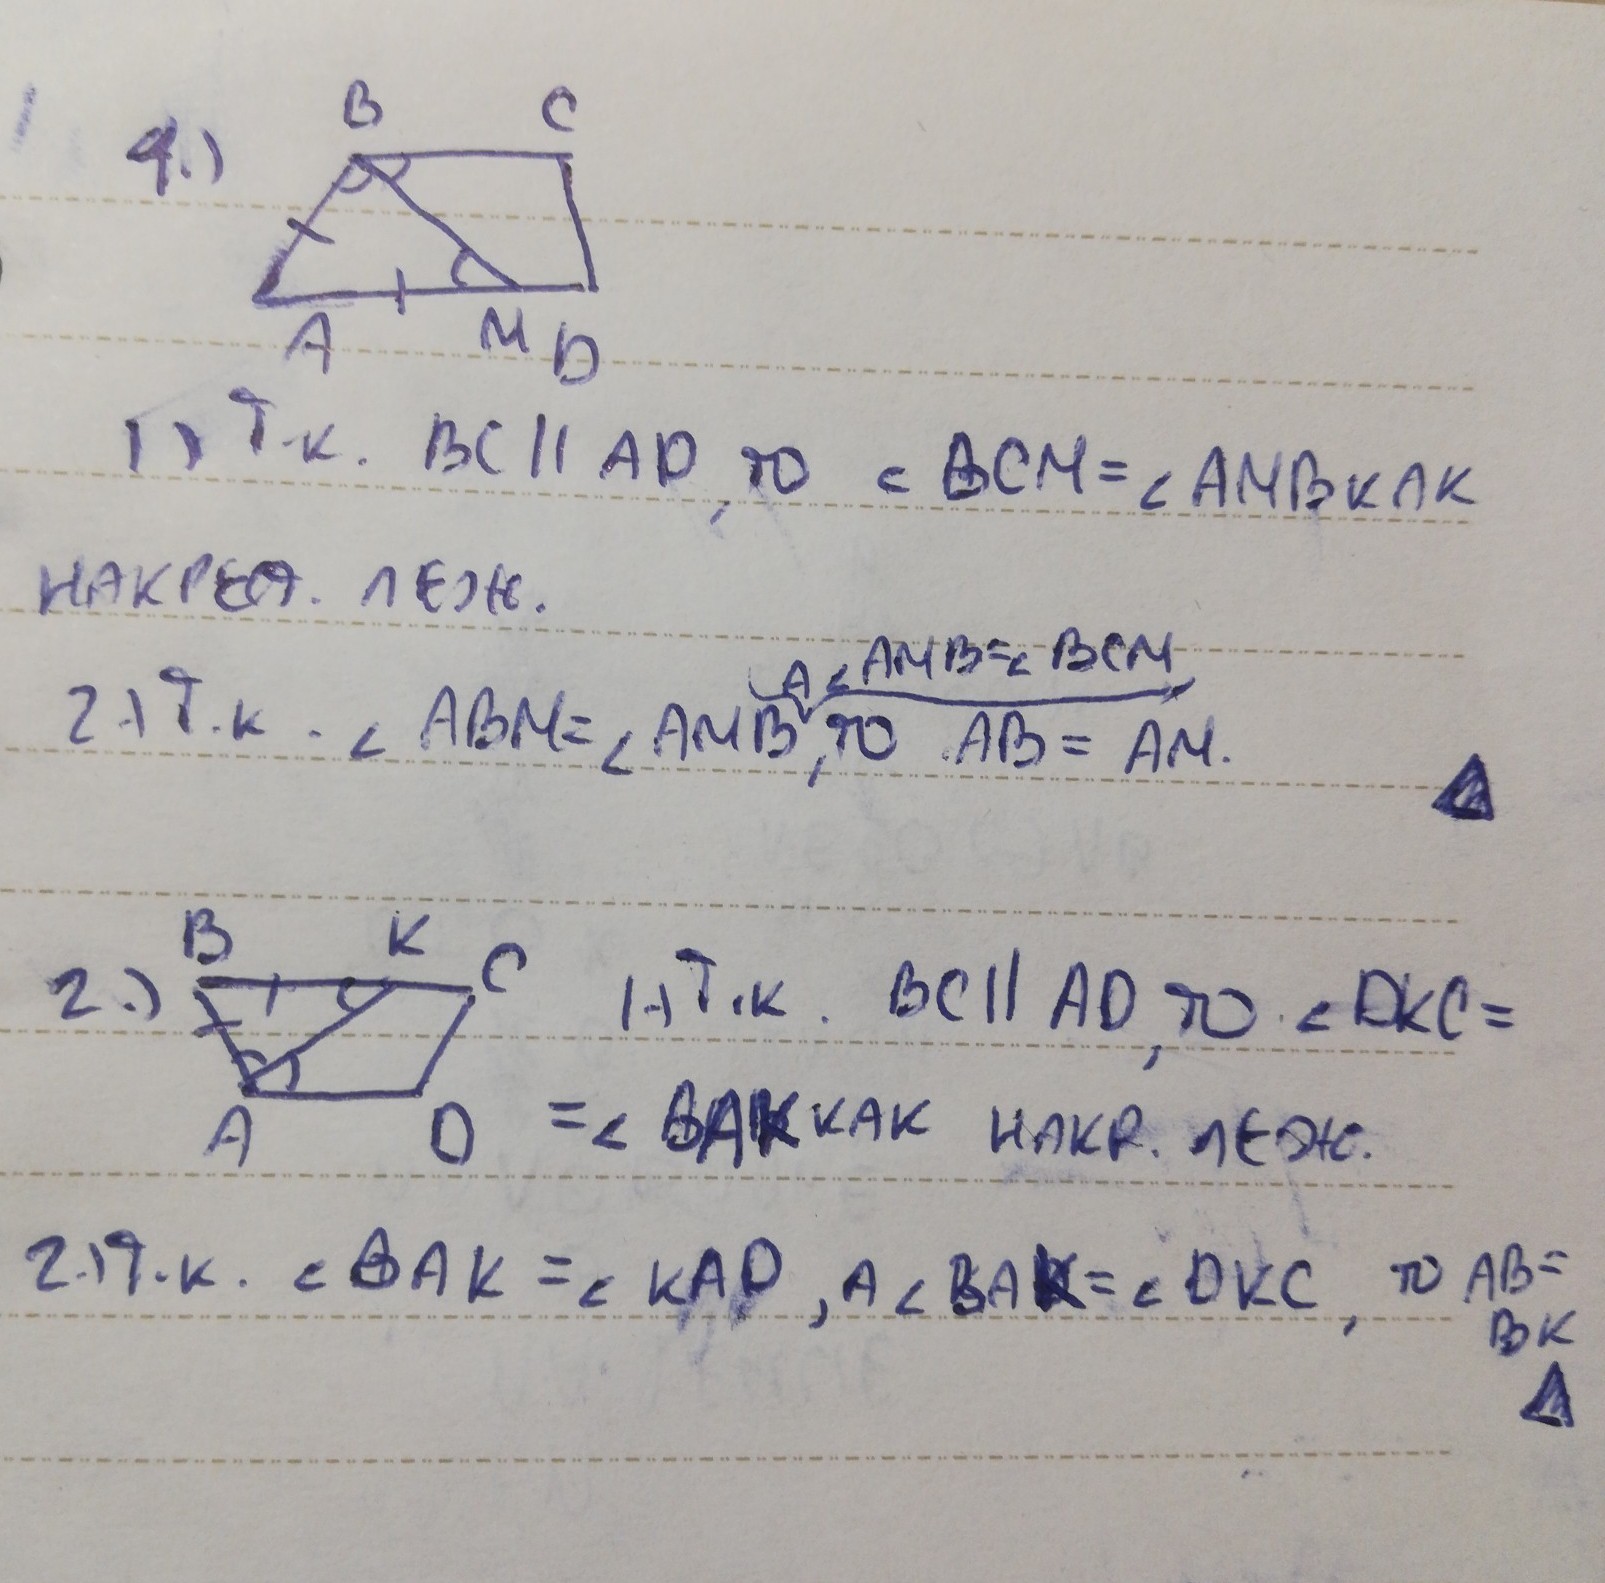 B C
1.)
A M D
1) Т.к. BC || AD, то ∠ BCM = ∠ AMB как
накрест. леж.
а ∠ AMB = ∠ BCM
2.) Т.к. ∠ ABM = ∠ AMB, то AB = AM.
B K C
2.)
A D
1.) Т.к. BC || AD, то ∠ DKC =
= ∠ BAK как накр. леж.
2.) Т.к. ∠ BAK = ∠ KAD, а ∠ BAK = ∠ DKC, то AB =
BK